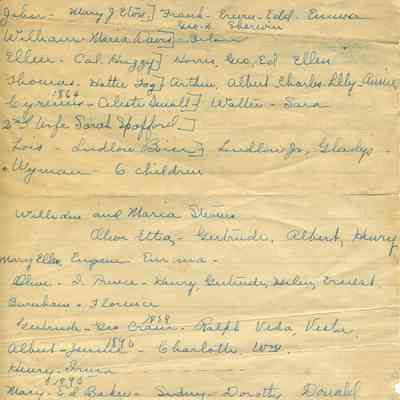 John - Mary J Etvs] Frank - Erwin - Edd. Emma
Geo. H. Sherwin
William Maria Davis] Orlan
Ellen - Cal. Huggy] Norris, Geo, Ed Ellen
Thomas. Hattie Fog] Arthur, Albert Charles. Libby - Annie
1864
Cyrenius - Celeste Small] Walter - Sara
2nd Wife Sarah Spofford]
Lois - Ludlow Boies] Ludlow Jr, Gladys -
Wyman - 6 children
William and Maria Stevens
Olive Utta, - Gertrude, Albert, Henry
Mary Ella, Eugene Emma -
Olive - I. Bruce - Henry, Gertrude, Helen, Ernest.
Burnham - Florence
1868
Gertrude - Geo Crain - Ralph Veda Vesta
1896
Albert - Jennie - Charlotte, Wm.
Henry - Irma
1896
Mary - Ed Baker - Sidney - Dorothy Donald